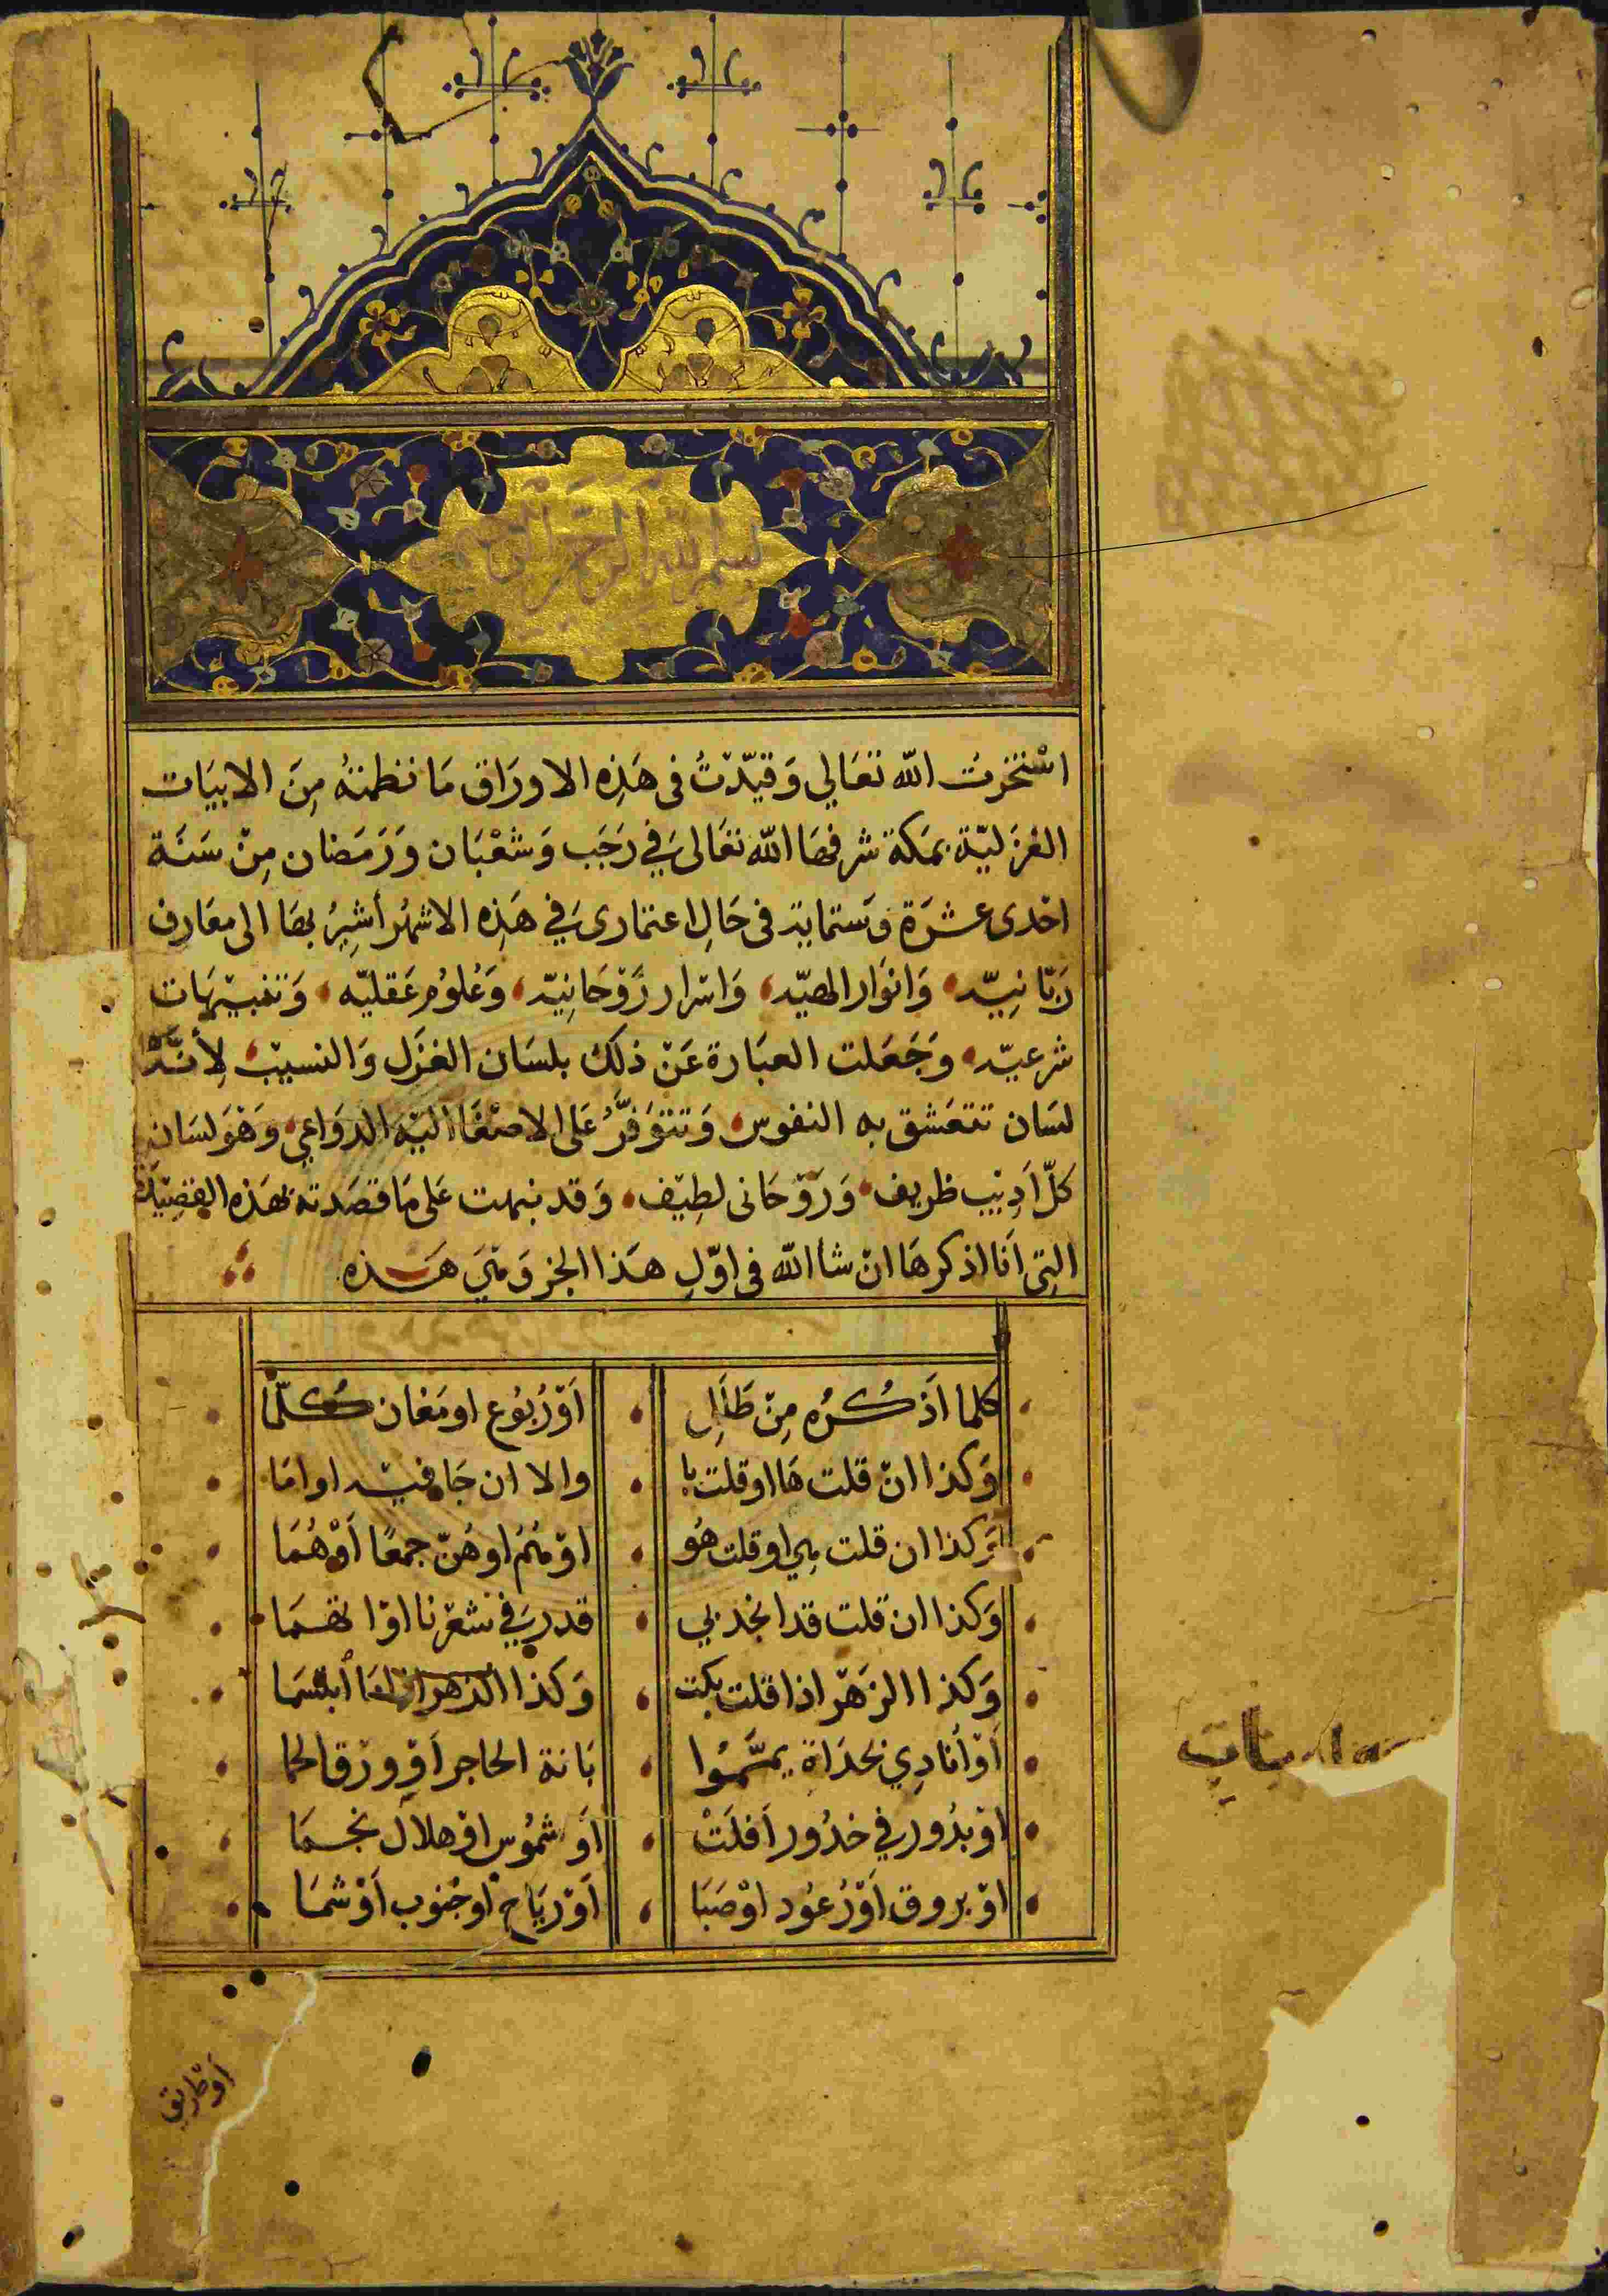 بسم الله الرحمن الرحيم
اسْتخرتُ الله تعَالي وَقيّدْتُ في هَذِه الاورَاق مَا نظمتهُ مِنَ الابيَات
الغزَليّة بمَكة شرفهَا الله تعَالى في رَجَب وَشعْبَان وَرَمَضان مِنْ سَنَة
احْدى عشرَة وَستماية في حَالِ اعتمارى في هَذِه الاشهُر أشِيرُ بهَا الى معَارف
رَبّانِيّه، وَانوَار الهيّه، وَاسْرار رُوْحَانِيّه، وَعُلوُم عَقليّه، وَتنبيْهَات
شرعيّه، وَجَعَلت العبَارة عَنْ ذلك بلسَان الغزَل وَالنسيْب، لِأنّهُ
لسَان تتعَشق به النفوس، وَتتوَفَّرُ عَلى الاصْغَا اليْه الدوَاعِي، وَهوَ لسَان
كلّ اَدِيْب ظريف، وَرَوْحَانى لطِيْف، وَقد نبهت عَلى مَا قصَدته بهَذه القصِيْدة
التِى اَنا اذكرهَا انْ شا الله في اوّلِ هذا الجز وَهيَ هَذه
كلما اَذكُرُه مِنْ طَلَلِ ، اَوْ رُبُوُع او مَغان كُلّمَا
وَكذا انْ قلت هَا او قلت يا ، والا ان جَا فيْه او امَا
وَكذا ان قلت هِي او قلت هُو ، اوْ هُمُ او هُنّ جمعًا اَوْ هُمَا
وَكذا ان قلت قد انجد بي ، قدر في شعْرنا اوْ اتهمَا
وَكذا الزهَرْ اذا قلت بكت ، وَكذا الزهر ابتسَمَا
اَوْ اُنادِي بحدَاة يمَّمُوا ، بَانة الحاجر اَوْ ورْق الحما
اوْ بدُور في خدُور اَفلَتْ ، اَو شمُوس اوْ هلال نجمَا
اوْ بروق اَوْ رُعُود اوْ صَبَا ، اَوْ ريَاح اَو جنوب اَوْ شمَا
اَو طَريق